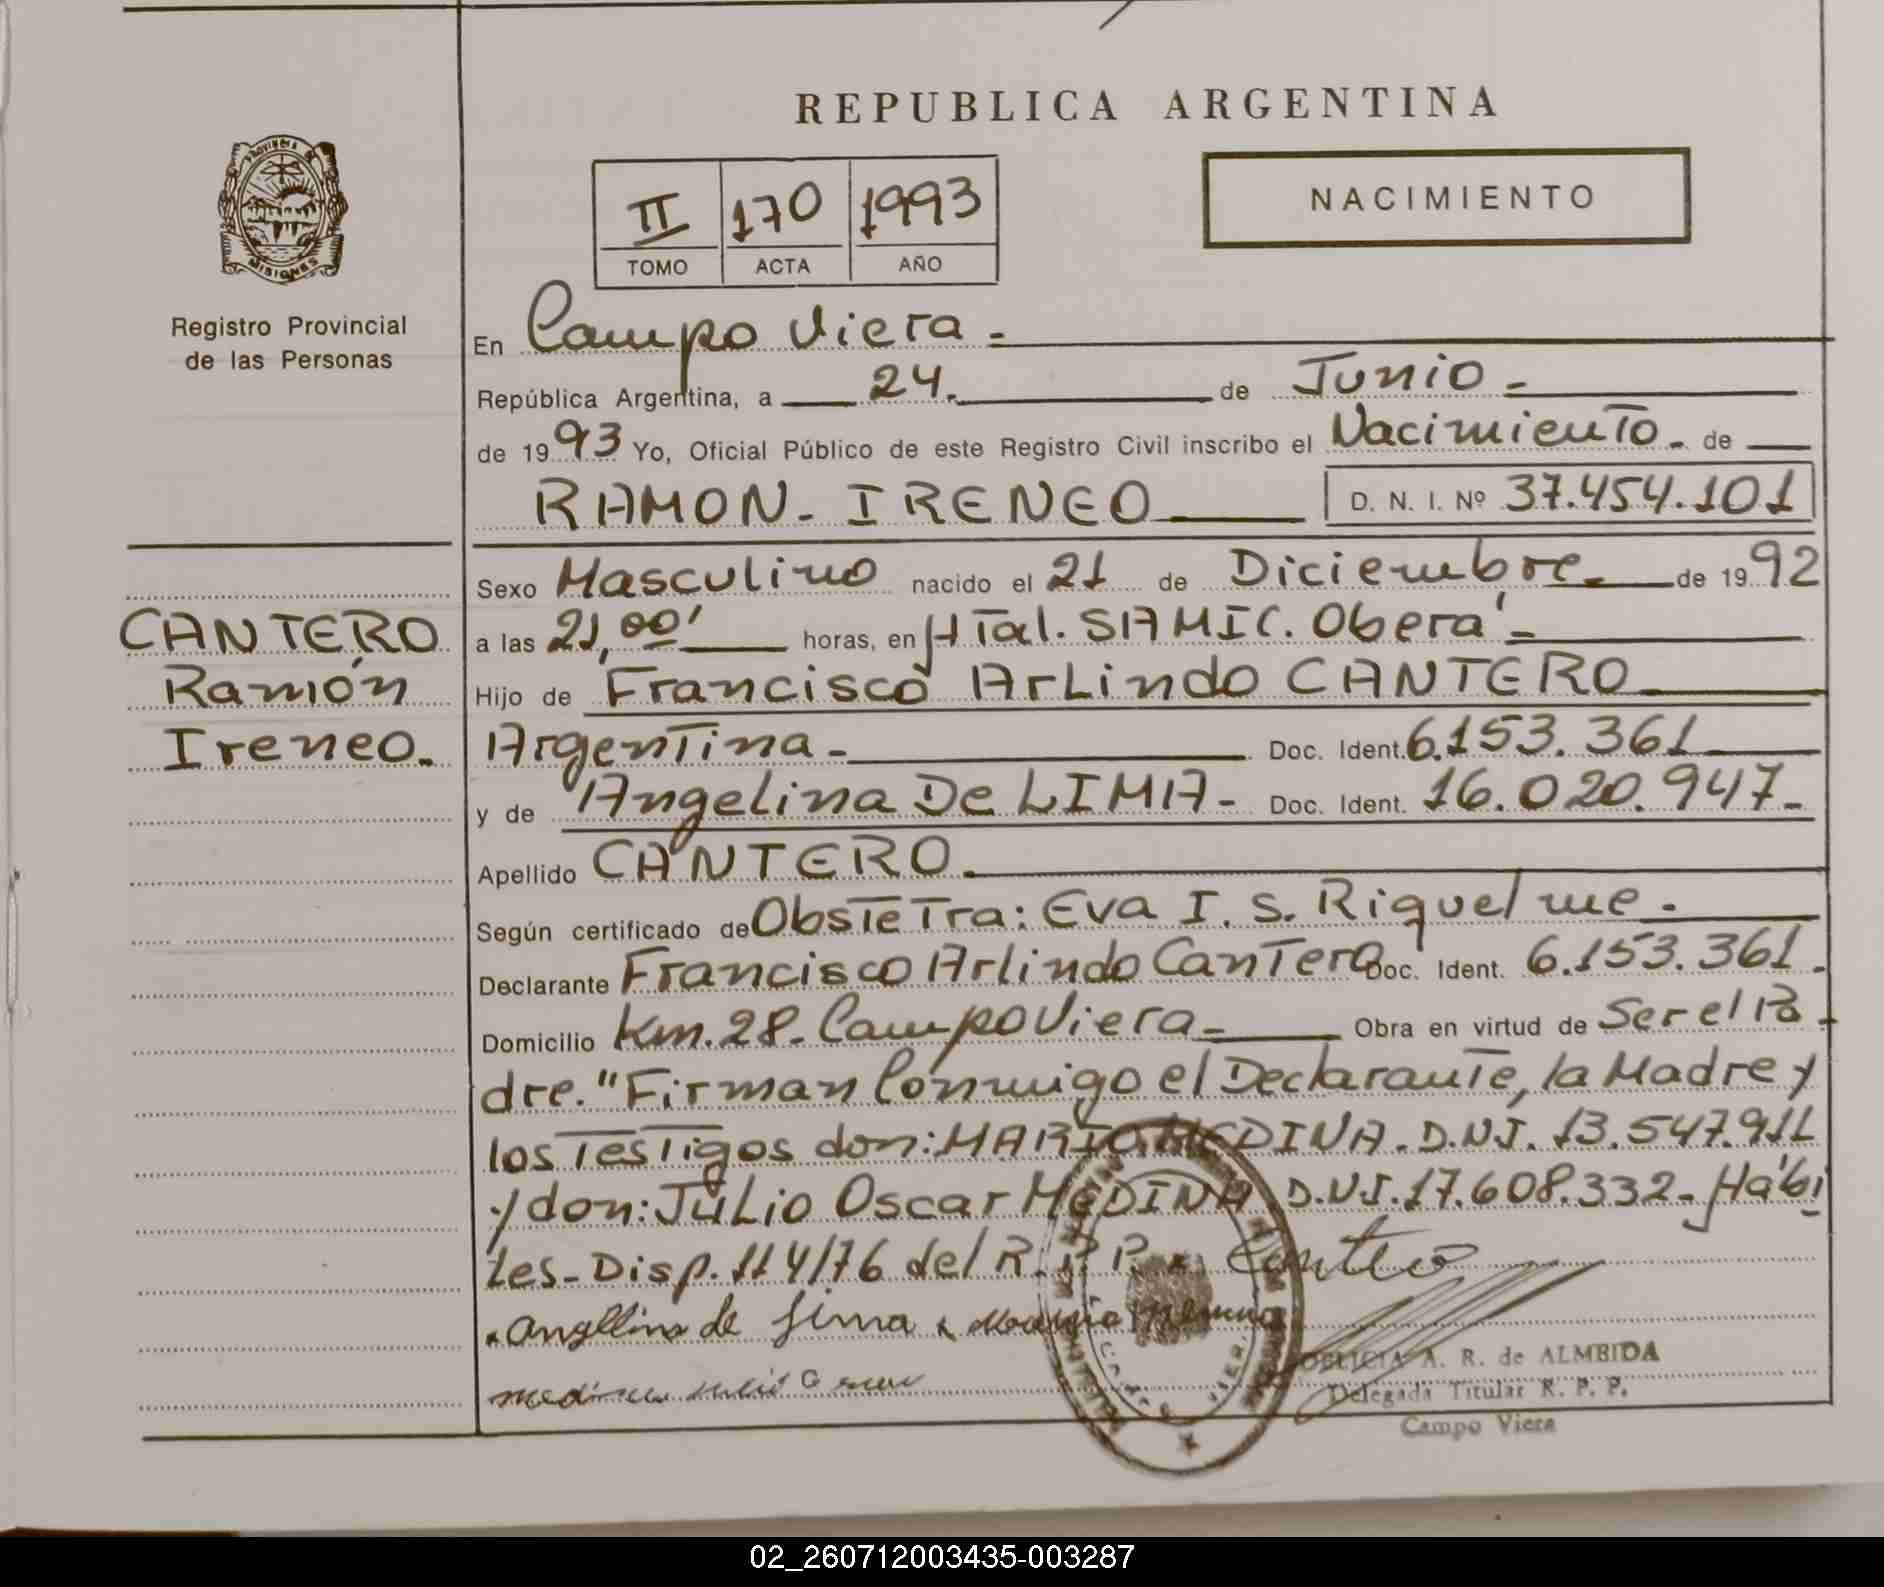 REPUBLICA ARGENTINA
PROVINCIA DE
MISIONES
Registro Provincial
de las Personas
II 170 1993
TOMO ACTA AÑO
NACIMIENTO
En Campo Viera.-
República Argentina, a 24. de Junio-
de 1993 Yo, Oficial Público de este Registro Civil inscribo el Nacimiento- de
RAMON- IRENEO D. N. I. Nº 37.454.101
Sexo Masculino nacido el 21 de Diciembre. de 1992
a las 21,00' horas, en HTal. SAMIC. Oberá-
Hijo de Francisco ArLindo CANTERO
Argentina- Doc. Ident. 6.153.361
y de Angelina De LIMA- Doc. Ident. 16.020.947-
Apellido CANTERO.
Según certificado de Obstetra: Eva I. S. Riquelme.
Declarante Francisco Arlindo Cantero Doc. Ident. 6.153.361.
Domicilio Km. 28- Campo Viera- Obra en virtud de Ser el Pa-
dre. "Firman Conmigo el Declarante, la Madre y
los Testigos don: MARIO MEDINA. D.N.I. 13.547.911
y don: Julio Oscar MEDINA D.N.I. 17.608.332- Hábi
Les- Disp. 114/76 del R. P. P. x Cantero
x Angelina de Lima x
medina Julio
CANTERO
Ramón
Ireneo.
DELICIA A. R. de ALMEIDA
Delegada Titular R. P. P.
Campo Viera
02_260712003435-003287